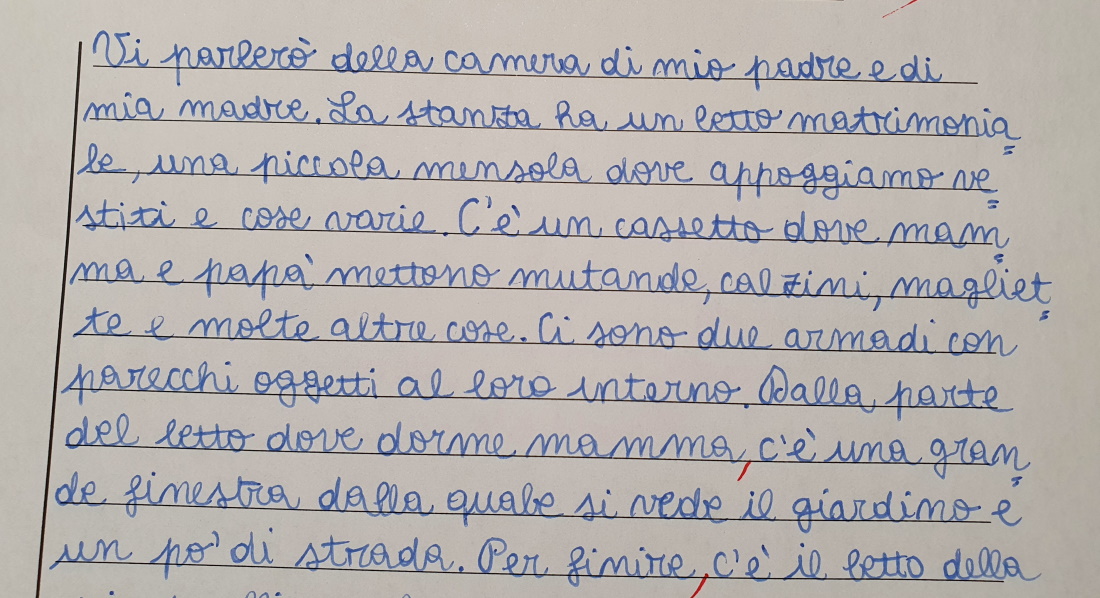 Vi parlerò della camera di mio padre e di
mia madre. La stanza ha un letto matrimonia=
le, una piccola mensola dove appoggiamo ve=
stiti e cose varie. C'è un cassetto dove mam=
ma e papà mettono mutande, calzini, magliet=
te e molte altre cose. Ci sono due armadi con
parecchi oggetti al loro interno. Dalla parte
del letto dove dorme mamma, c'è una gran=
de finestra dalla quale si vede il giardino e
un po' di strada. Per finire, c'è il letto della